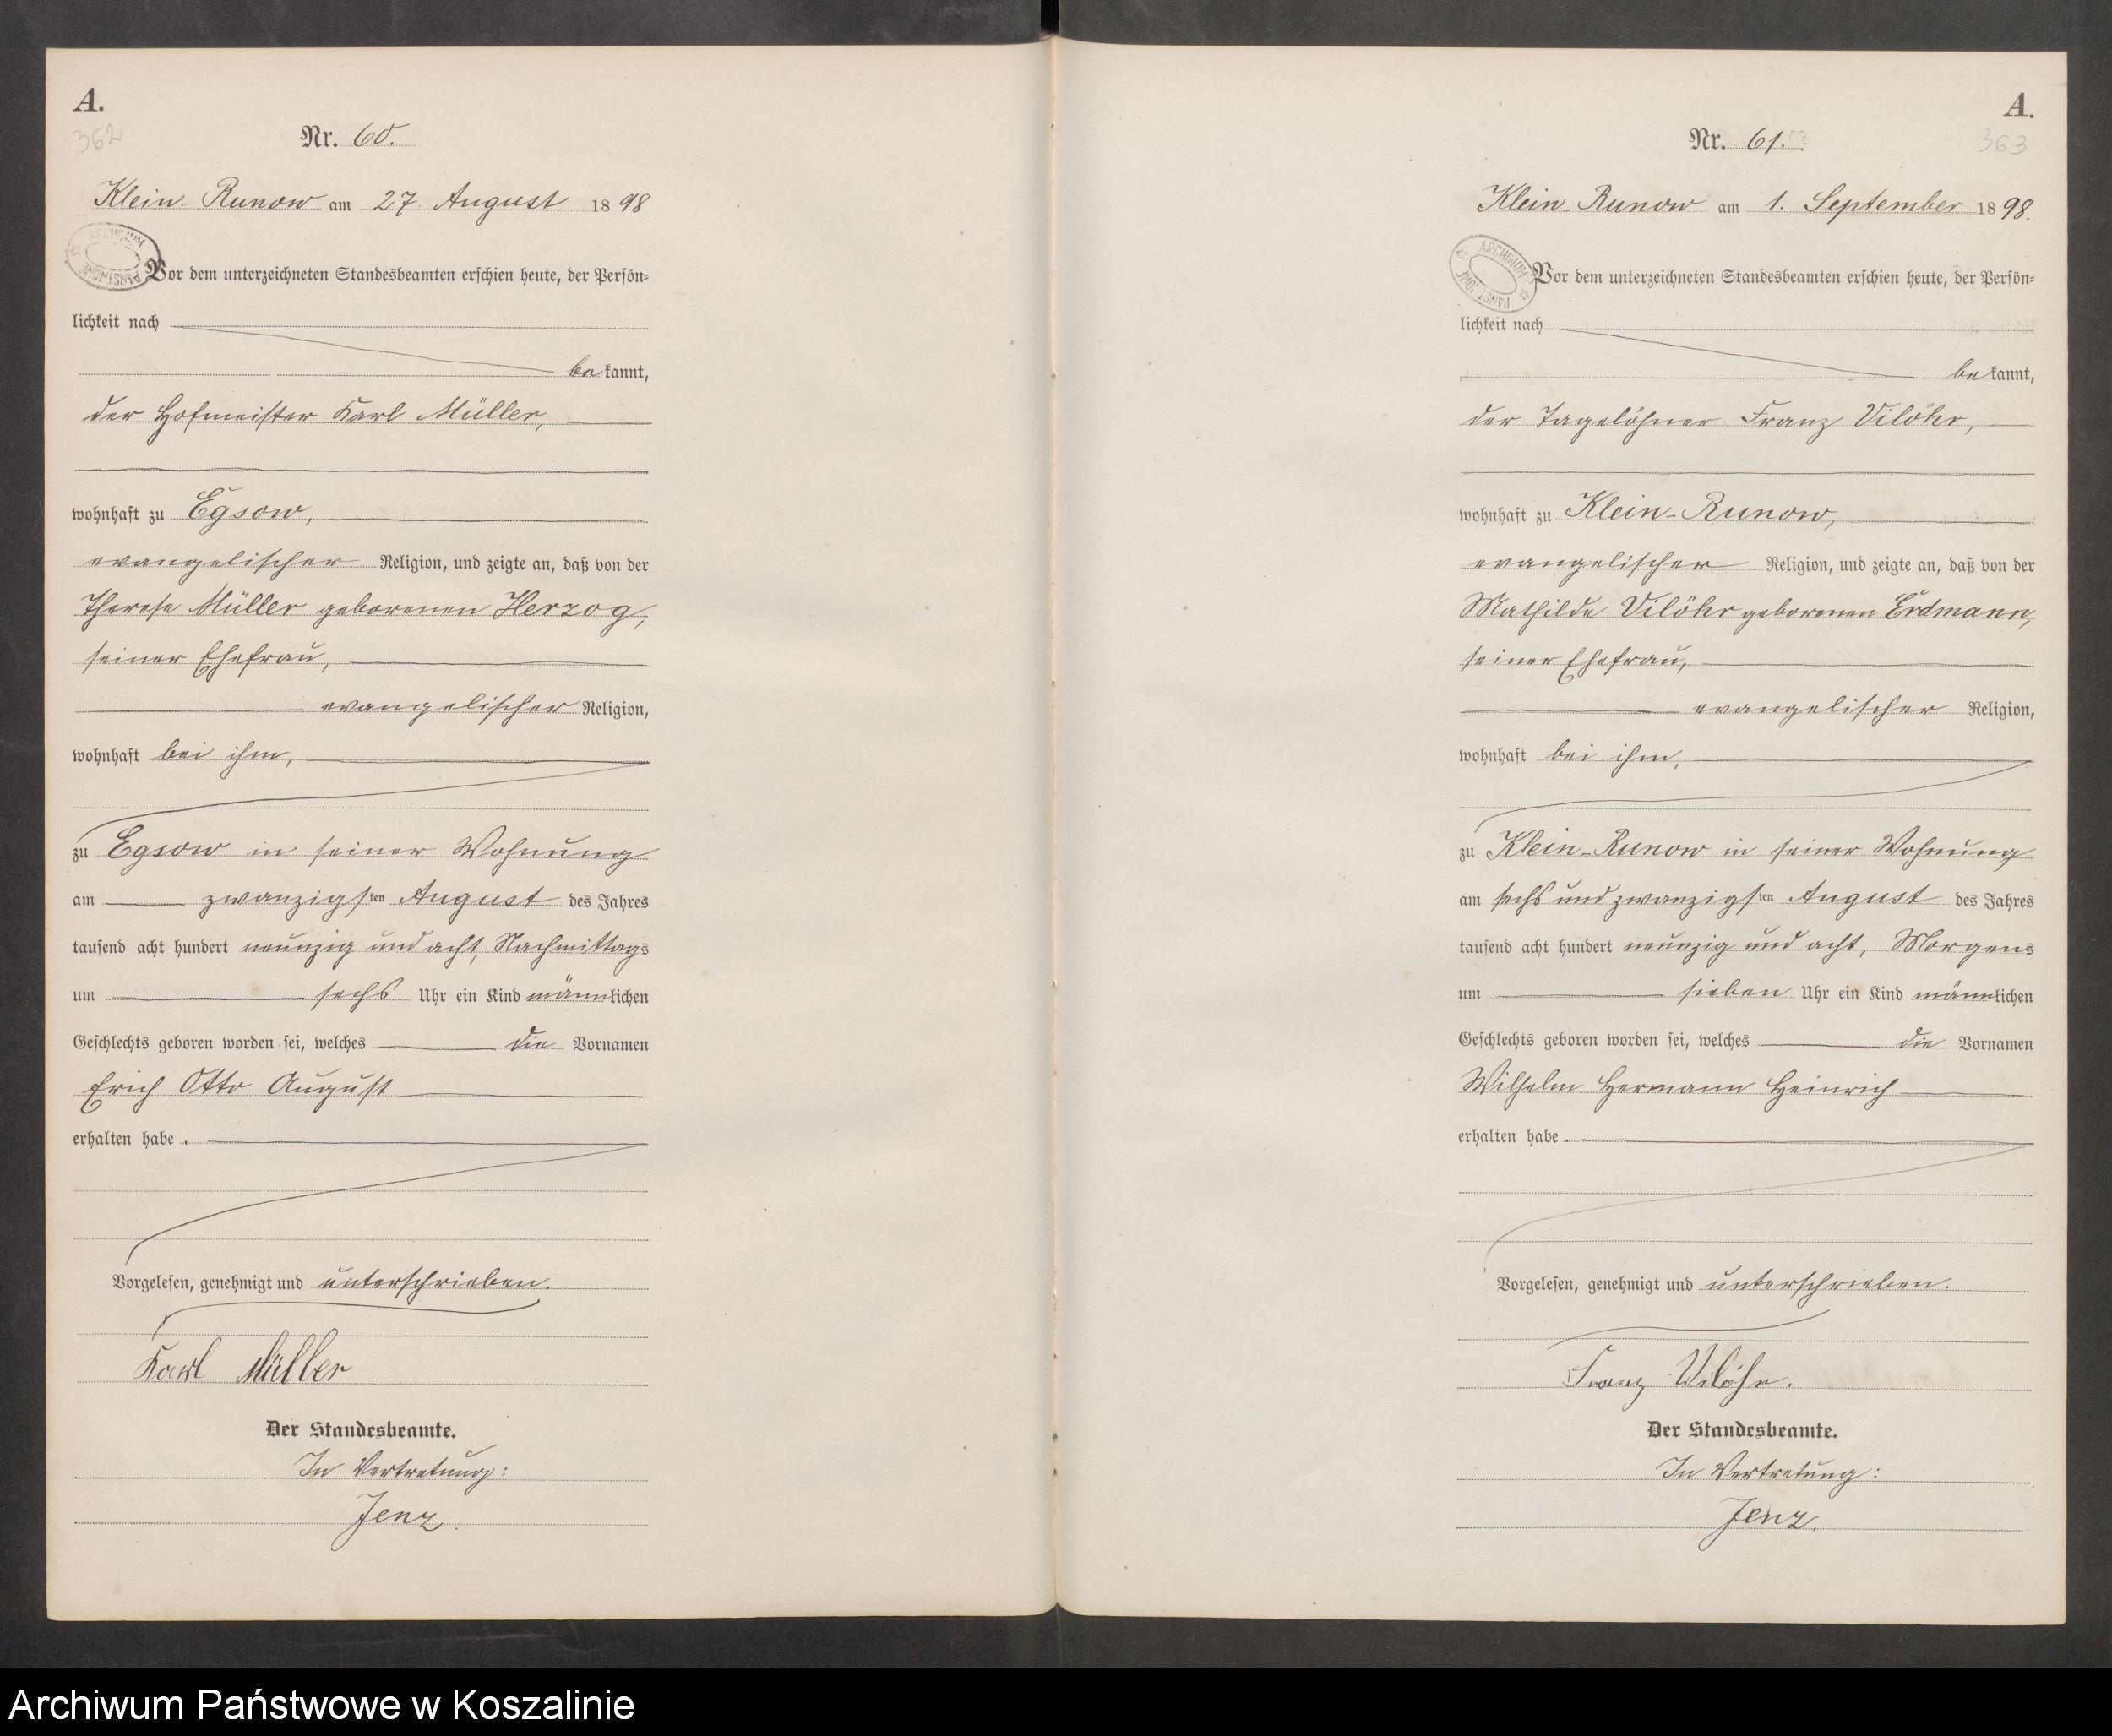 A.
362
Nr. 60.
Klein-Runow am 27. August 1898
ARCHIWUM PAŃSTWOWE
Vor dem unterzeichneten Standesbeamten erschien heute, der Persön=
lichkeit nach
bekannt,
der Hofmeister Karl Müller,
wohnhaft zu Egsow,
evangelischer Religion, und zeigte an, daß von der
Therese Müller geborenen Herzog,
seiner Ehefrau,
evangelischer Religion,
wohnhaft bei ihm,
zu Egsow in seiner Wohnung
am zwanzigsten August des Jahres
tausend acht hundert neunzig und acht, Nachmittags
um sechs Uhr ein Kind männlichen
Geschlechts geboren worden sei, welches die Vornamen
Erich Otto August
erhalten habe.
Vorgelesen, genehmigt und unterschrieben.
Karl Müller
Der Standesbeamte.
In Vertretung:
Jenz.
A.
363
Nr. 61.
Klein-Runow am 1. September 1898.
ARCHIWUM PAŃSTWOWE
Vor dem unterzeichneten Standesbeamten erschien heute, der Persön=
lichkeit nach
bekannt,
der Tagelöhner Franz Vilöhr,
wohnhaft zu Klein-Runow,
evangelischer Religion, und zeigte an, daß von der
Mathilde Vilöhr geborenen Erdmann,
seiner Ehefrau,
evangelischer Religion,
wohnhaft bei ihm,
zu Klein-Runow in seiner Wohnung
am sechs und zwanzigsten August des Jahres
tausend acht hundert neunzig und acht, Morgens
um sieben Uhr ein Kind männlichen
Geschlechts geboren worden sei, welches die Vornamen
Wilhelm Hermann Heinrich
erhalten habe.
Vorgelesen, genehmigt und unterschrieben.
Franz Vilöhr.
Der Standesbeamte.
In Vertretung:
Jenz.
Archiwum Państwowe w Koszalinie